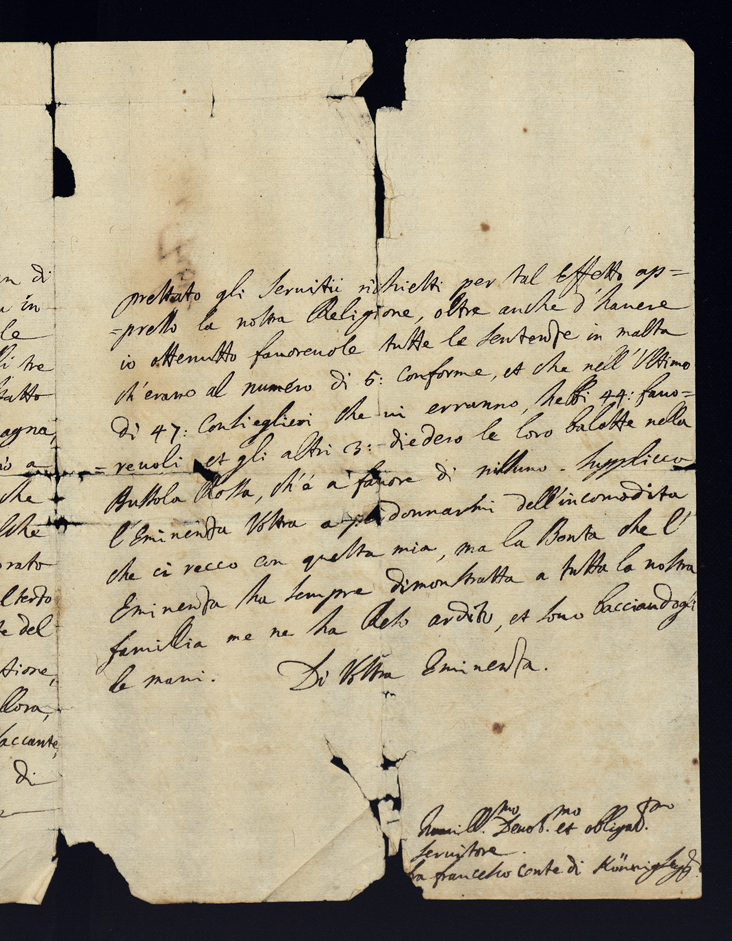 n di
n in
le
li tre
fatto
agna,
io a
che
lche
orato
l terto
te del
tione,
llora,
accante,
di
prestato gli Seruitii richiesti per tal Effetto ap=
=presso la nostra Religione, oltre anche d'hauere
io ottenutto fauoreuole tutte le sentenze in malta
ch'erano al numero di 5: conforme, et che nell'Vltimo
di 47: Consieglieri che ui erranno, hebbi 44: fauo=
=reuoli et gli altri 3: diedero le loro balotte nella
Bussola Rossa, ch'é a fauore di nissuno. Supplicco
l'Eminenza Vostra a perdonnarmi dell'incomodita
che ci recco con questa mia, ma la Bonta che l'
Eminenza ha sempre dimonstratta a tutta la nostra
famillia me ne ha Reso ardito, et sono bacciandogli
le mani. Di Vostra Eminenza.
Humill.mo Deuot.mo et obligat.mo
Seruitore.
fra francesco conte di Königsegg